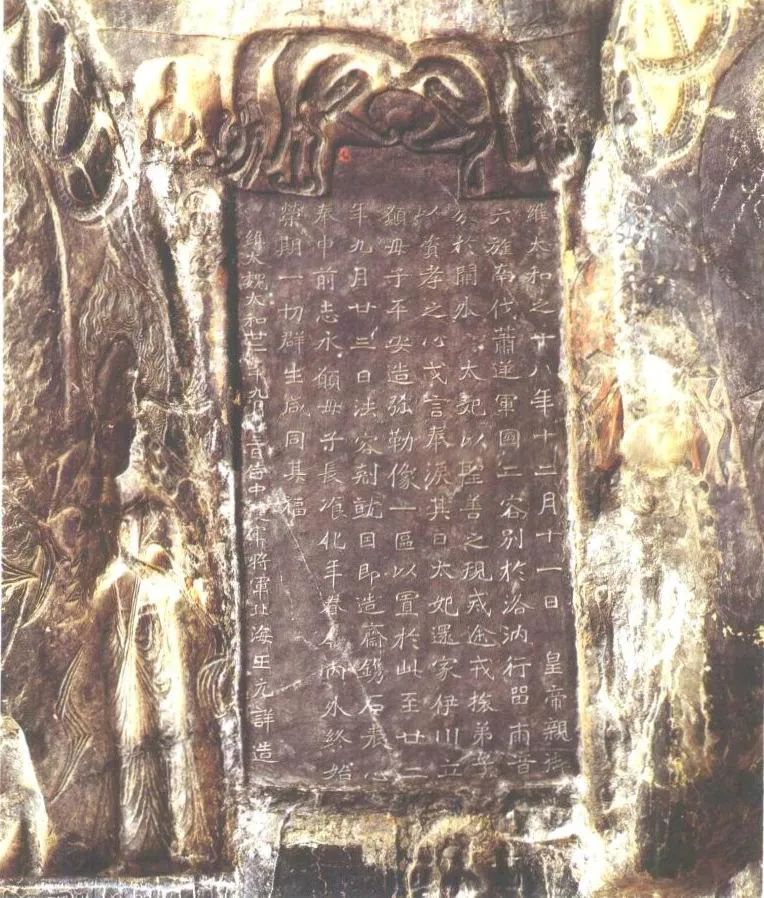 維太和之十八年十二月十一日 皇帝親御
六旌南伐蕭逆軍國二容別於洛汭行留兩音
分於闕外 太妃以聖善之規戒途戎旅弟子
以資孝之心戈言奉淚其日太妃還家伊川立
願母子平安造弥勒像一區以置於此至廿二
年九月廿三日法容剋就因即造齋鐫石表心
奉申前志永願母子長瘳化年眷屬內外終始
榮期一切群生咸同其福
維大魏太和廿二年九月廿三日侍中護軍將軍北海王元詳造